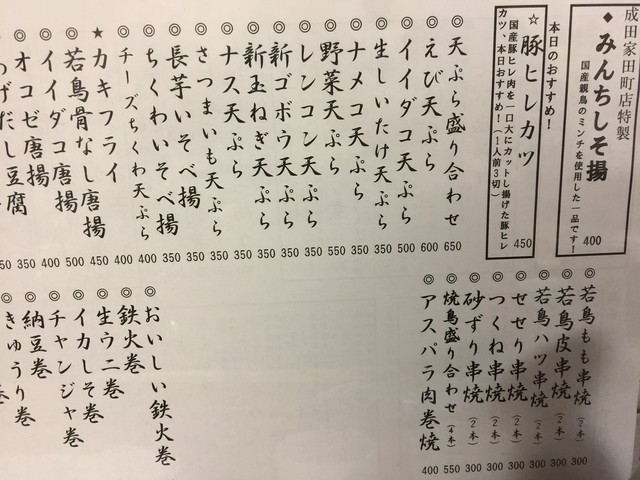 成田家田町店特製
◆みんちしそ揚
国産親鳥のミンチを使用した一品です!
400
本日のおすすめ!
☆豚ヒレカツ
国産豚ヒレ肉を一口大にカットし揚げた豚ヒレ
カツ、本日おすすめ!(1人前3切) 450
◎天ぷら盛り合わせ 650
◎えび天ぷら 600
◎イイダコ天ぷら 500
◎生しいたけ天ぷら 350
◎ナメコ天ぷら 350
◎野菜天ぷら 350
◎レンコン天ぷら 350
◎新ゴボウ天ぷら 350
◎新玉ねぎ天ぷら 350
◎ナス天ぷら 350
◎さつまいも天ぷら 350
◎長芋いそべ揚 350
◎ちくわいそべ揚 350
◎チーズちくわ天ぷら 400
★カキフライ 400
◎若鳥骨なし唐揚 450
◎イイダコ唐揚 500
◎オコゼ唐揚 400
げだし豆腐 350
◎若鳥もも串焼(2本) 300
◎若鳥皮串焼(2本) 300
◎若鳥ハツ串焼(2本) 300
◎せせり串焼(2本) 300
◎つくね串焼(2本) 300
◎砂ずり串焼(2本) 300
◎焼鳥盛り合わせ(4本) 550
◎アスパラ肉巻焼 400
◎おいしい鉄火巻
◎鉄火巻
◎生ウニ巻
◎イカしそ巻
◎チャンジャ巻
◎納豆巻
◎きゅうり巻